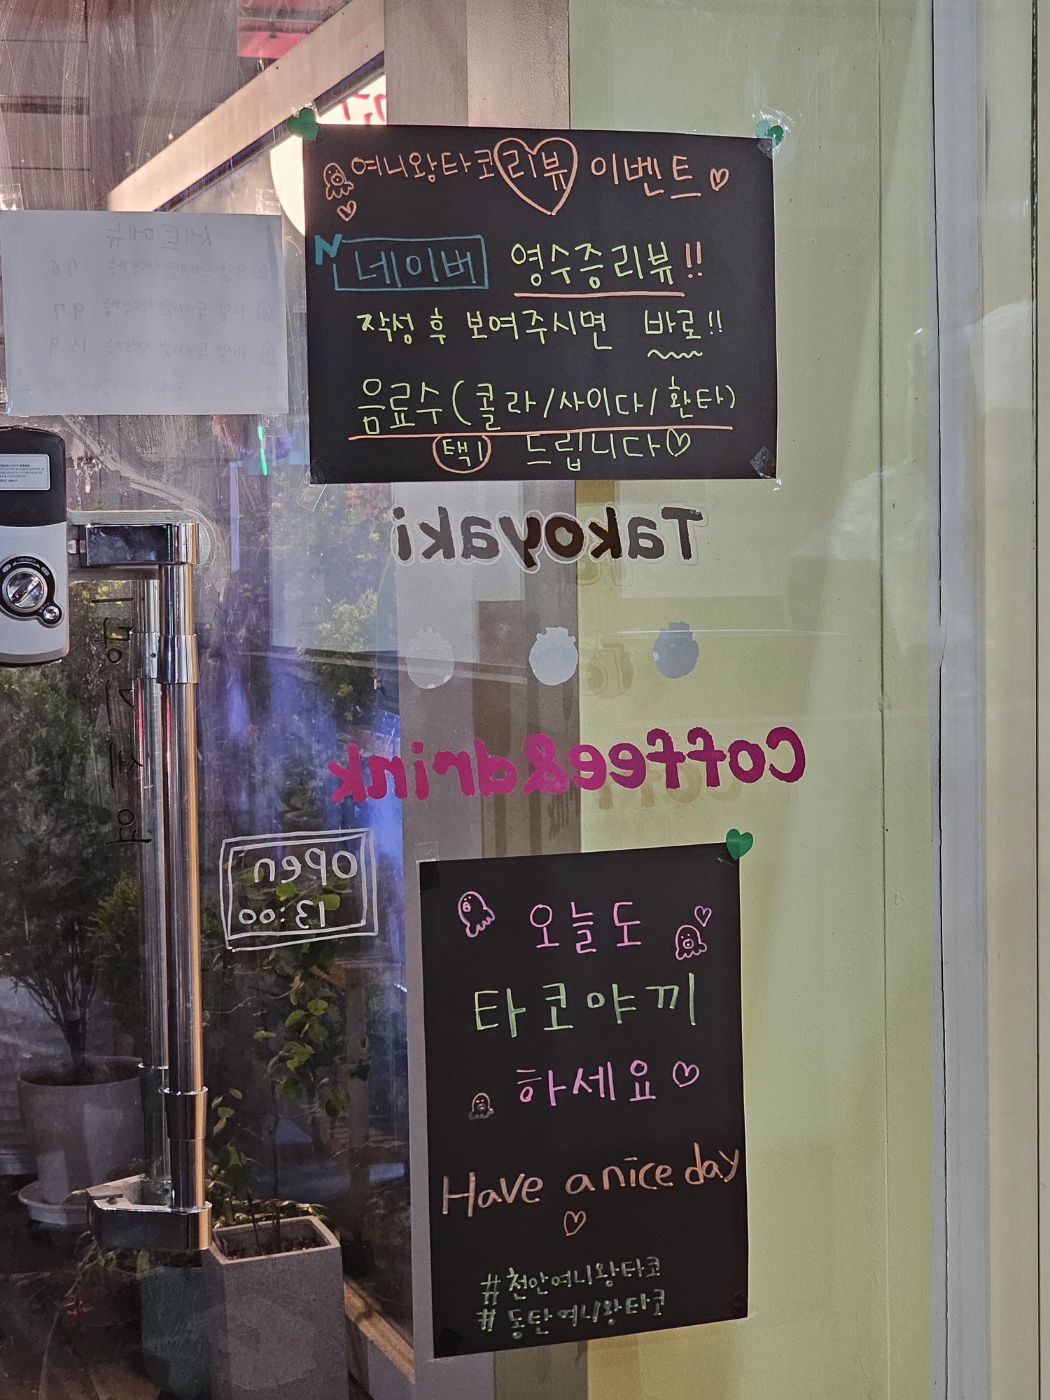 여니왕타코 리뷰 이벤트
N 네이버 영수증리뷰!!
작성 후 보여주시면 바로!!
음료수(콜라/사이다/환타)
택1 드립니다
세트메뉴
Takoyaki
Coffee&drink
open
13:00
오늘도
타코야끼
하세요
Have a nice day
#천안여니왕타코
#동탄여니왕타코